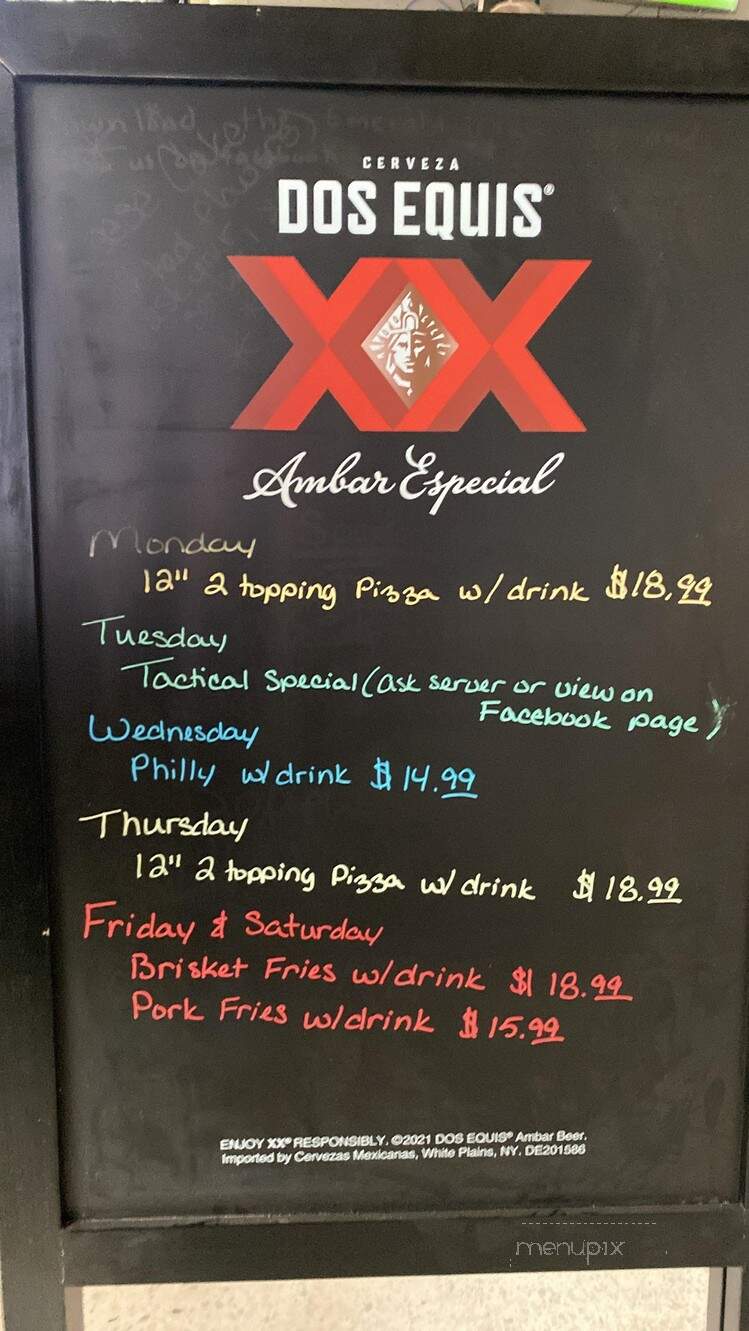 CERVEZA
DOS EQUIS®
XX
Ambar Especial
Monday
12" 2 topping Pizza w/ drink $18.99
Tuesday
Tactical Special (ask server or view on
Facebook page)
Wednesday
Philly w/ drink $14.99
Thursday
12" 2 topping Pizza w/ drink $18.99
Friday & Saturday
Brisket Fries w/ drink $18.99
Pork Fries w/ drink $15.99
ENJOY XX® RESPONSIBLY. ©2021 DOS EQUIS® Ambar Beer.
Imported by Cervezas Mexicanas, White Plains, NY. DE201586
menupix